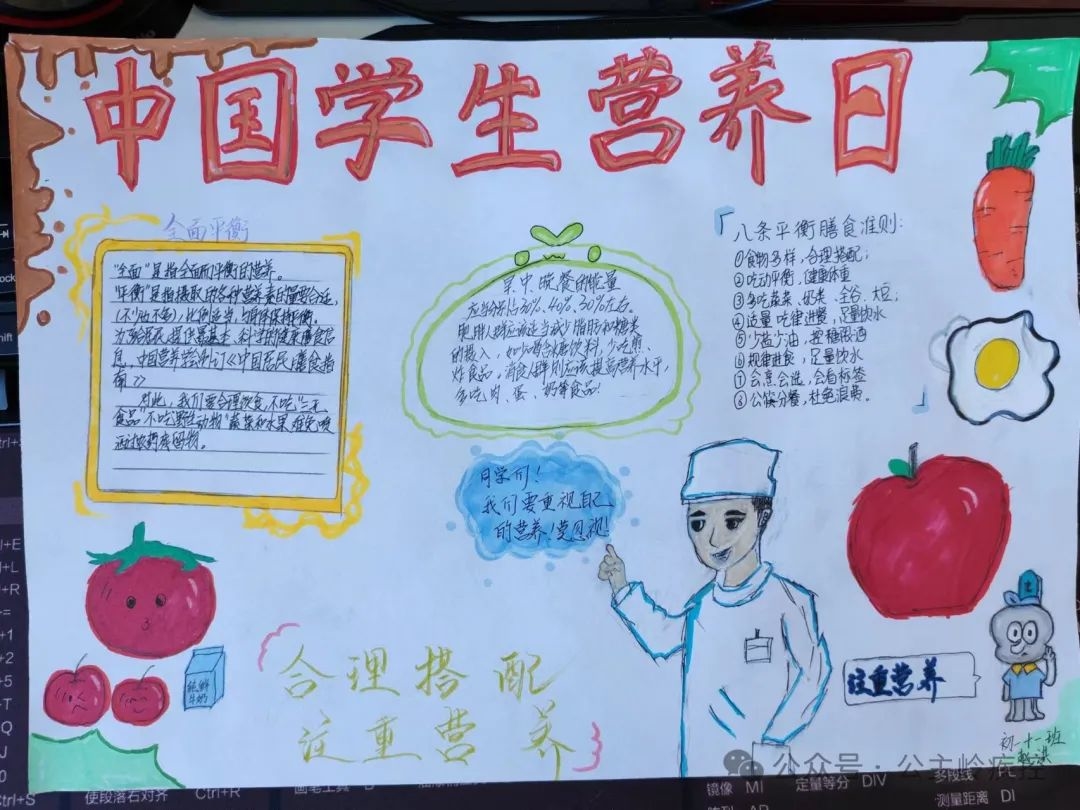 中国学生营养日
全面平衡
"全面"是指全面而平衡的营养。
"平衡"是指摄取的各种营养素的量要合适,
(不少也不多)比例适当,
为给居民提供最基本、科学的健康膳食信
息,中国营养学会制订《中国居民膳食指
南》
对此,我们要合理饮食,不吃"三无
食品"不吃野生动物"蔬菜和水果,难免喷
洒过农药库因物。
早中晚餐的能量
应当分别占30%、40%、30%左右。
肥胖人群应该适当减少脂肪和糖类
的摄入,如少喝含糖饮料,少吃煎、
炸食品,消食人群则应该提高营养水平,
多吃肉、蛋、奶等食品!
八条平衡膳食准则:
①食物多样,合理搭配;
②吃动平衡,健康体重
③多吃蔬菜、奶类、全谷、大豆;
④适量吃律进餐,足量饮水
⑤少盐少油,控糖限酒
⑥规律进食,足量饮水
⑦会烹会选,会看标签
⑧公筷分餐,杜绝浪费。
同学们!
我们要重视自己
的营养!
纯鲜
牛奶
合理搭配
注重营养
注重营养
初一十一班
公众号·公主岭疾控
Ctrl+S
使段落石对齐
Ctrl+R
镜像 MI
定量等分 DIV
多段线 PL
测量距离 DI